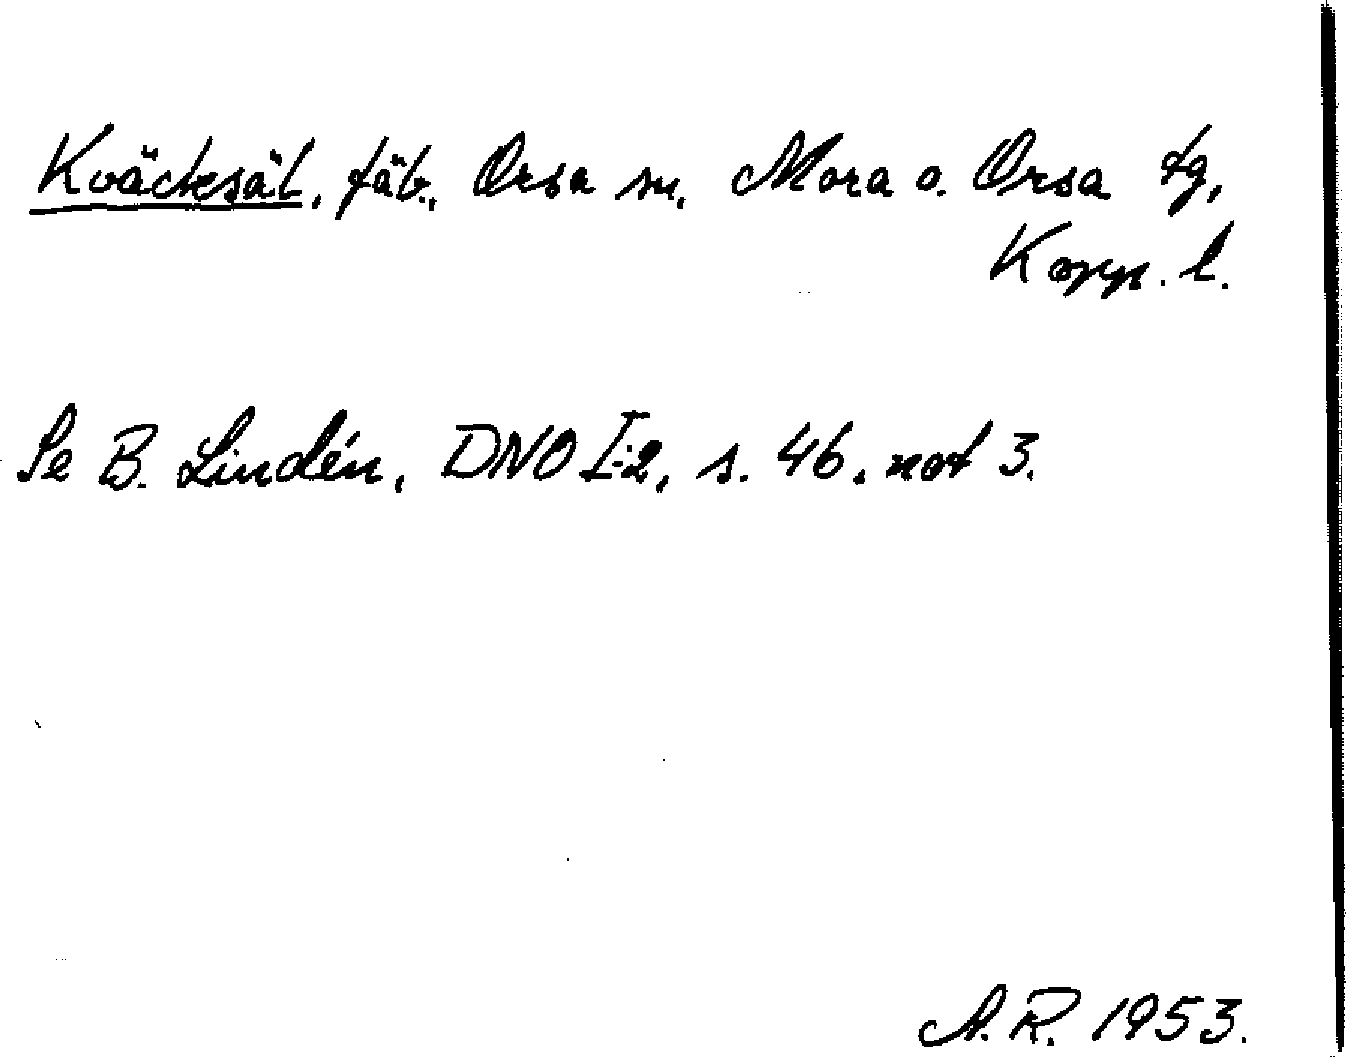 Kväcksäl, fäb., Orsa sn, Mora o. Orsa tg,
Kopp. l.
Se B. Lindén, DNO I:2, s. 46, not 3.
A.R. 1953.